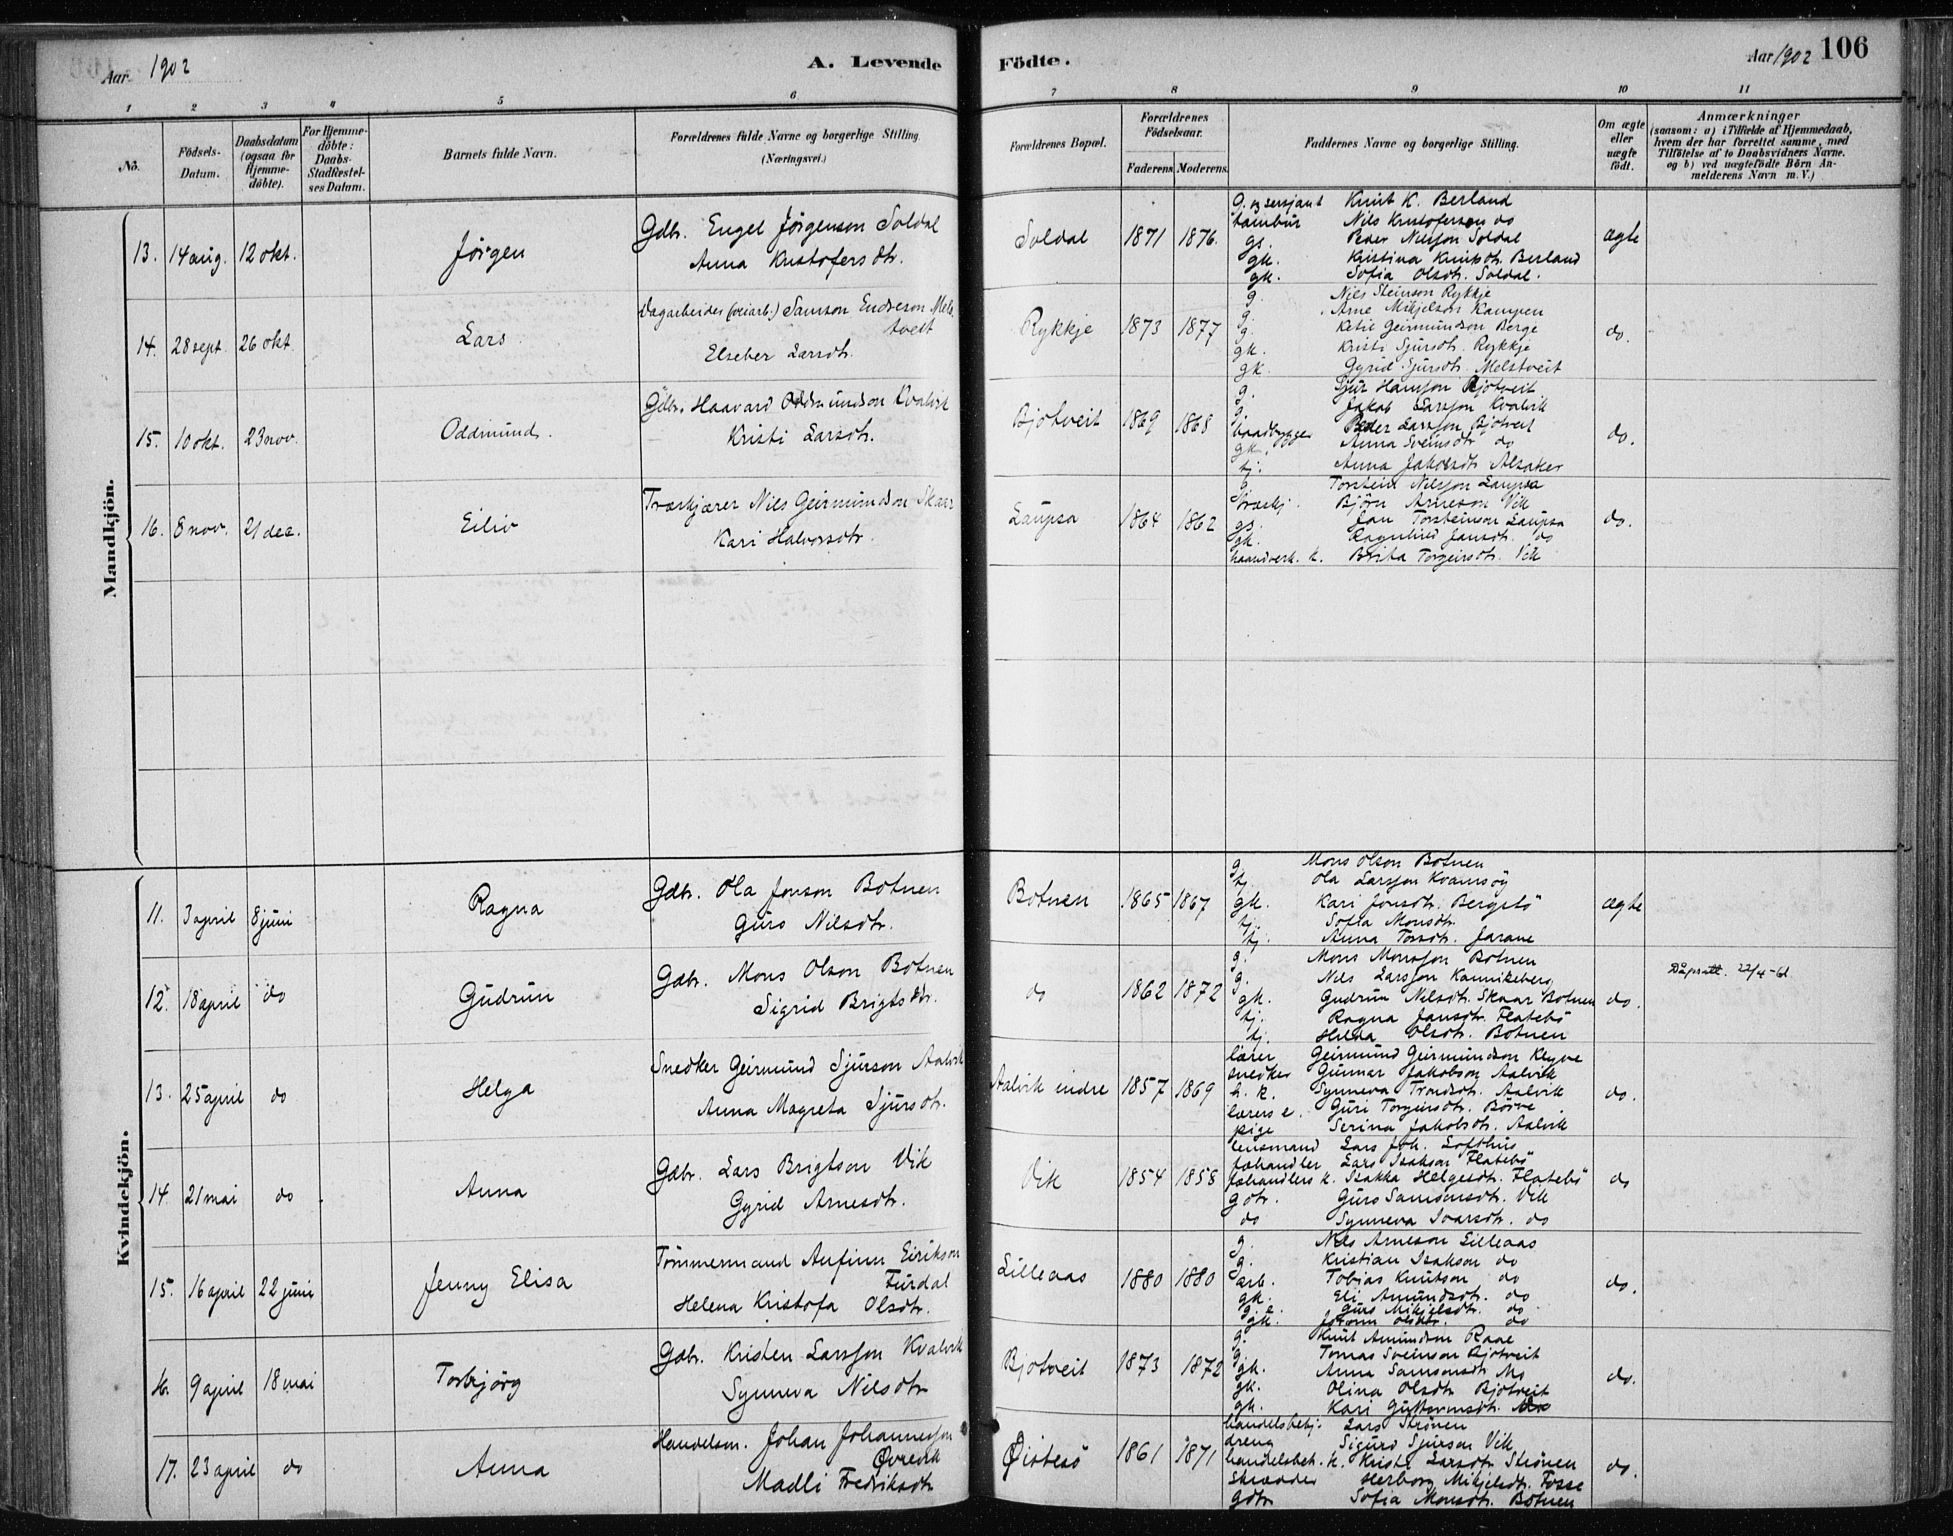 Aar 1902
A. Levende Födte.
Aar 1902 106
1 2 3 4 5 6 7 8 9 10 11
No.
Födsels-Datum.
Daabsdatum (ogsaa for Hjemme-döbte).
For Hjemme-döbte: Daabs-Stadfæstel-ses Datum.
Barnets fulde Navn.
Forældrenes fulde Navne og borgerlige Stilling. (Næringsvei.)
Forældrenes Bopæl.
Forældrenes Födselsaar.
Faderens. Moderens.
Faddernes Navne og borgerlige Stilling.
Om ægte eller uægte födt.
Anmærkninger
(saasom: a) i Tilfælde af Hjemmedaab, hvem der har forrettet samme, med Tilföielse af to Daabsvidners Navne. og b) ved uægtefödte Börn An-melderens Navn m. V.)
Mandkjön.
13. 14 aug. 12 okt. Jørgen
Gdbr. Engel Jørgenson Soldal
Anna Kristofersdtr.
Soldal 1871 1876.
g. og sersjant Knut K. Berland
tambur Nils Kristoferson do
gs. Peder Nilsson Soldal
gk. Kristina Knutsdtr. Berland
gk. Sofia Olsdtr. Soldal.
ægte
14. 28 sept. 26 okt Lars
Dagarbeider (veiarb.) Samson Endreson Mels-
tveit
Elseber Larsdtr.
Rykkje 1873 1877
g. Nils Steinson Rykkje
g. Arne Mikjelson Kampen
g. Ketil Geirmundson Berge
gk. Kristi Sjursdtr. Rykkje
gk. Gyrid Sjursdtr. Melstveit
do.
15. 10 okt. 23 nov. Oddmund.
Gdbr. Haavard Oddmundson Kvalvik
Kristi Larsdtr.
Bjotveit 1869 1868
g. Sjur Hansson Bjotveit
g. Jakob Larsson Kvalvik
baadbygger Peder Larsson Bjotveit
gk. Anna Sveinsdtr do
tj. Anna Jakobsdtr Alsaker
do.
16. 8 nov. 21 dec. Eiliv
Træskjærer Nils Geirmundson Skaar
Kari Halvorsdtr.
Laupsa 1864 1862
g. Torstein Nilsson Laupsa
Træskj. Björn Arneson Vik
gs. Jan Torsteinson Laupsa
gk. Ragnhild Jansdt. do
haandverk. k. Brita Torgeirsdtr. Vik
do.
Kvindekjön.
11. 3 april 8 juni Ragna
Gdbr. Ola Jonson Botnen
Guro Nilsdtr.
Botnen 1865 1867
g. Mons Olson Botnen
tj. Ola Larsson Kvamsøy
gk. Kari Jonsdtr. Bergstö
tj. Sofia Monsdtr.
tj. Anna Torsdtr. Jarane
ægte
12. 18 april do Gudrun
Gdbr. Mons Olson Botnen
Sigrid Brigtsdtr.
do 1862 1872
g. Mons Monsson Botnen
g. Nils Larsson Kannikeberg
gk. Gudrun Nilsdtr. Skaar Botnen
tj. Ragna Jansdtr. Flatebö
tj. Helda Olsdtr. Botnen
do.
Dåpsatt. 22/4-61
13. 25 april do Helga
Snedker Geirmund Sjurson Aalvik
Anna Magreta Sjursdtr.
Aalvik indre 1857 1869
lærer Geirmund Geirmundson Kleyve
snedker Gunnar Jakobson Aalvik
h. k. Synneva Trondsdtr. Aalvik
lærers e. Guri Torgeirsdtr. Börve
pige Serina Jakobsdtr. Aalvik
do.
14. 21 mai do Anna
Gdbr. Lars Brigtson Vik
Gyrid Arnesdtr.
Vik 1854 1858
lensmand Lars Joh. Lofthus
fæhandler Lars Isakson Flatebö
fæhandlers k. Isakka Helgesdt. Flatebö
gdtr. Guro Samsonsdtr. Vik
do Synneva Ivarsdtr. do
do
15. 16 april 22 juni Jenny Elisa
Tömmermand Anfinn Eirikson
Furdal
Helena Kristofa Olsdtr.
Lilleaas 1880 1880
g. Nils Arneson Lilleaas
g. Kristian Isakson do
arb. Tobias Knutson do
gk. Eli Amundsdt. do
g. e. Guro Mikjelsdtr. do
gk. Johanna Olsdtr. do
do.
16. 9 april 18 mai Torbjörg
Gdbr. Kristen Larsson Kvalvik
Synneva Nilsdtr
Bjotveit 1873 1872
g. Knut Amundson Raae
g. Tomas Sveinson Bjotveit
gk. Anna Samsonsdt. Mo
gk. Olina Olsdtr Bjotveit
gk. Kari Guttormsdt. Mo
do.
17. 23 april do Anna
Handelsm. Johan Johannesson
Øvrevik
Madli Fredriksdtr
Øistesö 1861 1871
handelsbetj. Lars Strönen
dreng Sigurd Sjurson Vik
handelsbet. k. Kristi Larsdtr Strönen
Skrædder Herborg Mikjelsdt. Fosse
gdtr Sofia Monsdtr. Botnen
do.